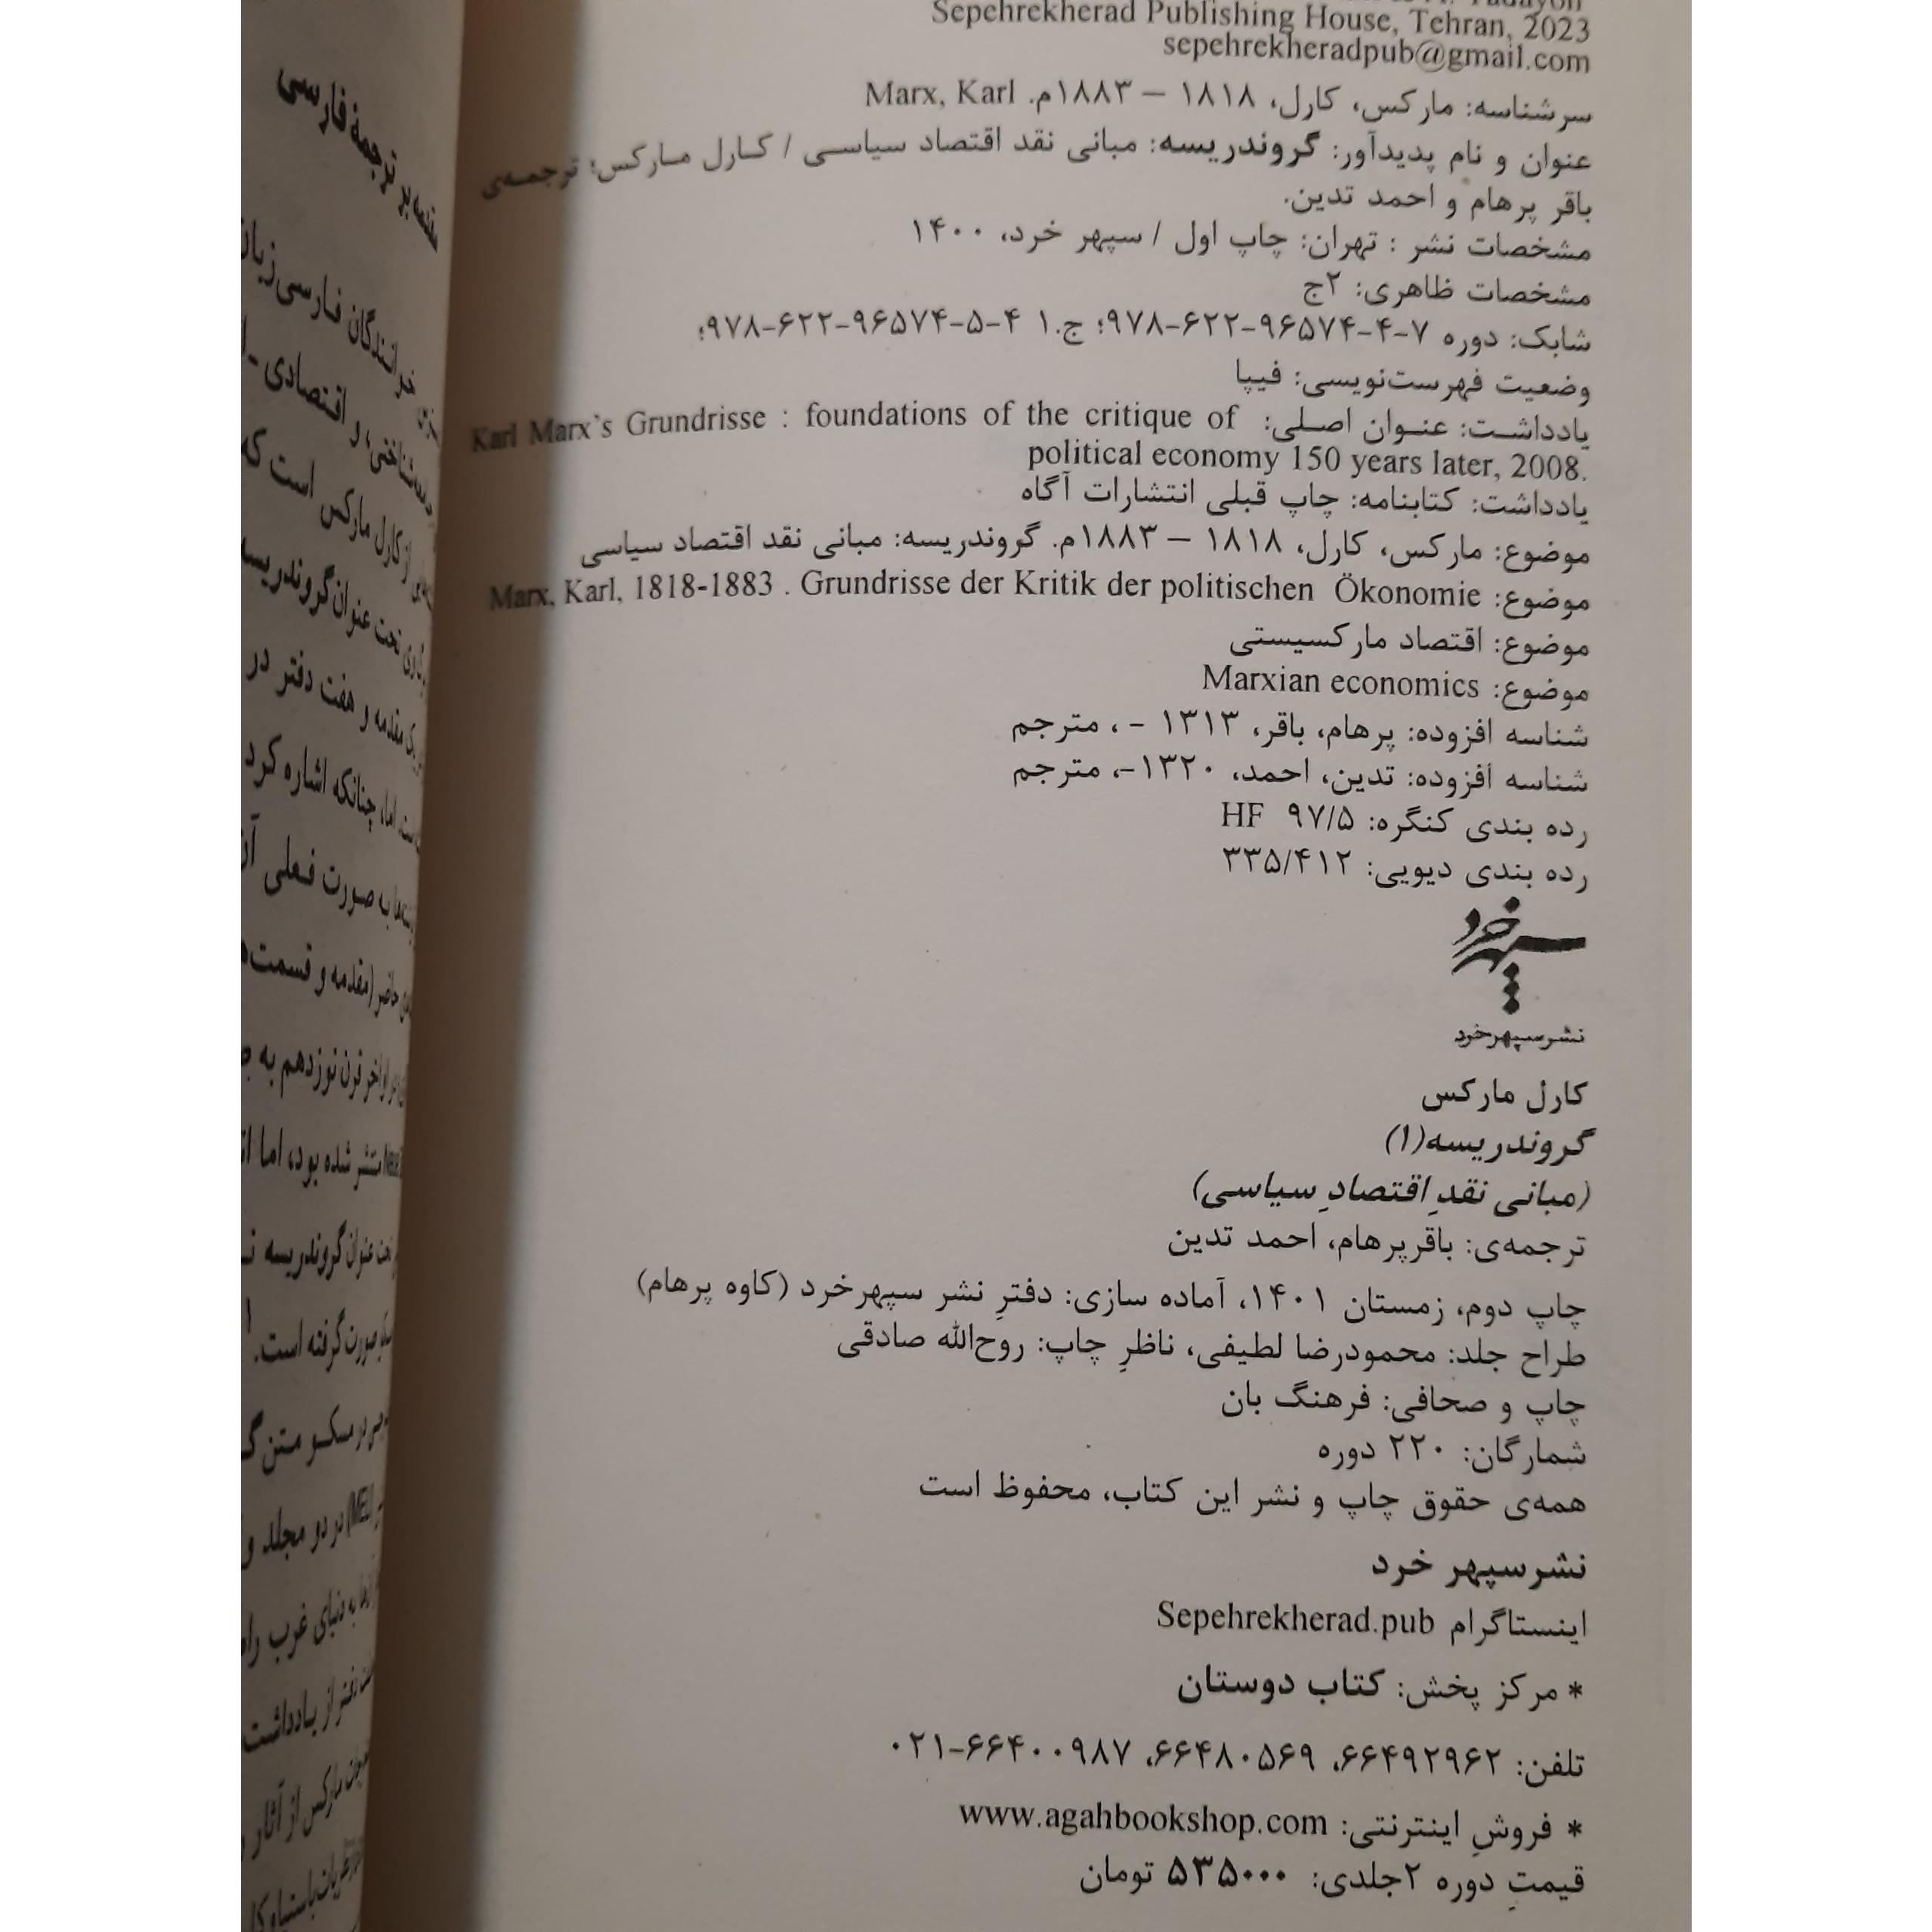 Sepehrekherad Publishing House, Tehran, 2023
sepehrekheradpub@gmail.com
سرشناسه: مارکس، کارل، ۱۸۱۸ – ۱۸۸۳م. Marx, Karl
عنوان و نام پدیدآور: گروندریسه: مبانی نقد اقتصاد سیاسی / کارل مارکس؛ ترجمه‌ی
باقر پرهام و احمد تدین.
مشخصات نشر : تهران: چاپ اول / سپهر خرد، ۱۴۰۰
مشخصات ظاهری: ۲ج
شابک: دوره ۷-۴-۹۶۵۷۴-۶۲۲-۹۷۸؛ ج.۱ ۴-۵-۹۶۵۷۴-۶۲۲-۹۷۸؛
وضعیت فهرست‌نویسی: فیپا
یادداشت: عنوان اصلی: Karl Marx's Grundrisse : foundations of the critique of
political economy 150 years later, 2008.
یادداشت: کتابنامه: چاپ قبلی انتشارات آگاه
موضوع: مارکس، کارل، ۱۸۱۸ – ۱۸۸۳م. گروندریسه: مبانی نقد اقتصاد سیاسی
موضوع: Marx, Karl, 1818-1883 . Grundrisse der Kritik der politischen Ökonomie
موضوع: اقتصاد مارکسیستی
موضوع: Marxian economics
شناسه افزوده: پرهام، باقر، ۱۳۱۳ - ، مترجم
شناسه افزوده: تدین، احمد، ۱۳۲۰-، مترجم
رده بندی کنگره: HF ۹۷/۵
رده بندی دیویی: ۳۳۵/۴۱۲
سپهر خرد
نشر سپهر خرد
کارل مارکس
گروندریسه(۱)
(مبانی نقدِ اقتصادِ سیاسی)
ترجمه‌ی: باقرپرهام، احمد تدین
چاپ دوم، زمستان ۱۴۰۱، آماده سازی: دفترِ نشر سپهرخرد (کاوه پرهام)
طراح جلد: محمودرضا لطیفی، ناظرِ چاپ: روح‌الله صادقی
چاپ و صحافی: فرهنگ بان
شمارگان: ۲۲۰ دوره
همه‌ی حقوق چاپ و نشر این کتاب، محفوظ است
نشر سپهر خرد
اینستاگرام Sepehrekherad.pub
* مرکز پخش: کتاب دوستان
تلفن: ۶۶۴۹۲۹۶۲، ۶۶۴۸۰۵۶۹، ۶۶۴۰۰۹۸۷-۰۲۱
* فروشِ اینترنتی: www.agahbookshop.com
قیمتِ دوره ۲جلدی: ۵۳۵۰۰۰ تومان
ترجمهٔ فارسی
خوانندگان فارسی‌زبان
و اقتصادی -
از کارل مارکس است که
تحت عنوان گروندریسه
مقدمه و هفت دفتر در
اما، چنانکه اشاره کرد
به صورت فعلی
حاضر (مقدمه و
اواخر قرن نوزدهم به
منتشر شده بود، اما
عنوان گروندریسه
صورت گرفته است.۱
در مسکو متن
در دو مجلد و
به دنیای غرب
دفتر از یادداشت
مارکس از آثار